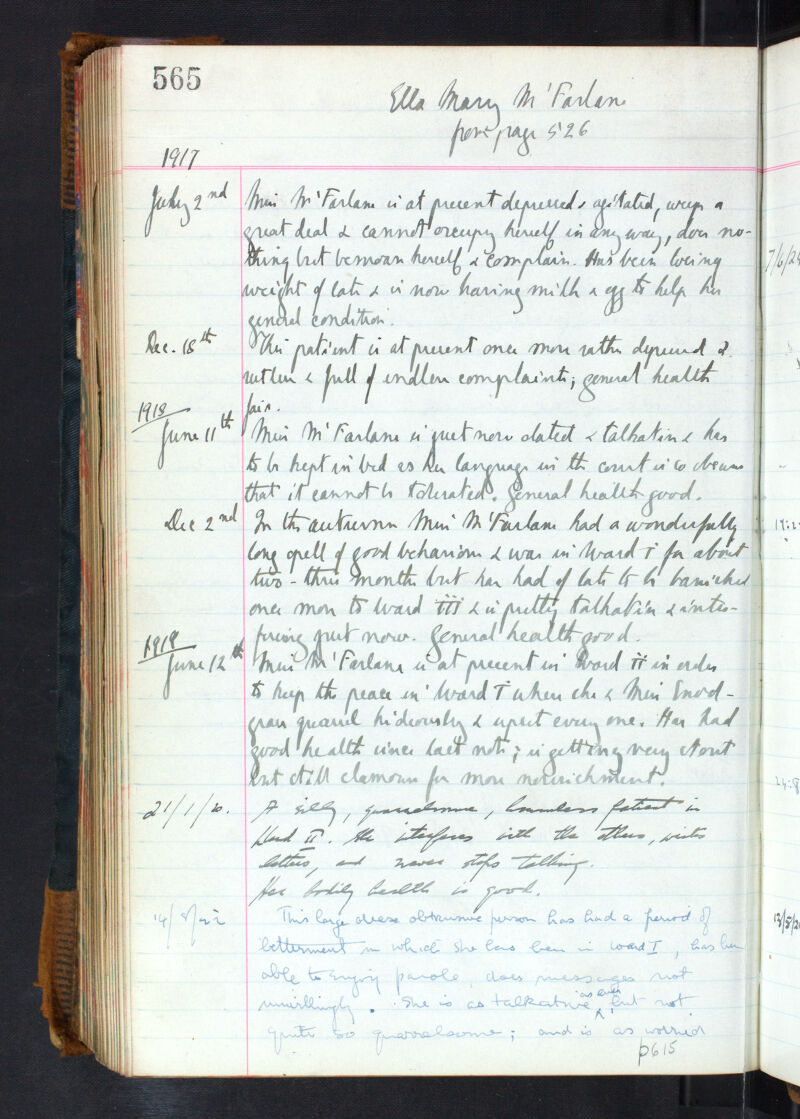 565
Ella Mary McFarlane
from page 526
1917
July 2nd Miss McFarlane is at present depressed & agitated, weeps a
great deal & cannot occupy herself in any way, does no-
thing but bemoan herself & complain. Has been losing
weight of late & is now having milk & egg to help her
general condition.
Dec. 18th This patient is at present once more rather depressed &
restless & full of endless complaints; general health
fair.
1918
June 11th Miss McFarlane is just now elated & talkative & has
to be kept in bed as her language in the court is so obscene
that it cannot be tolerated. General health good.
Dec 2nd In the autumn Miss McFarlane had a wonderfully
long spell of good behaviour & was in Ward I for about
two-three months but has had of late to be banished
once more to Ward III & is pretty talkative & inter-
fering just now. General health good.
1918
June 12th Miss McFarlane is at present in Ward II in order
to keep the peace in Ward I where she & Miss Snod-
grass quarrel hideously & upset every one. Has had
good health since last note; is getting very stout
but still clamours for more nourishment.
21/1/20. A silly, quarrelsome, harmless patient in
Ward II. She interferes with the others, writes
letters, and never stops talking.
Her bodily health is good.
14/8/22 This large obese obtrusive person has had a period of
betterment in which she has been in ward I, has been
able to enjoy parole, does messages not
unwillingly. She is as talkative as ever, but not
quite so quarrelsome; and is as worried
p615
7/6/2
13/5/2